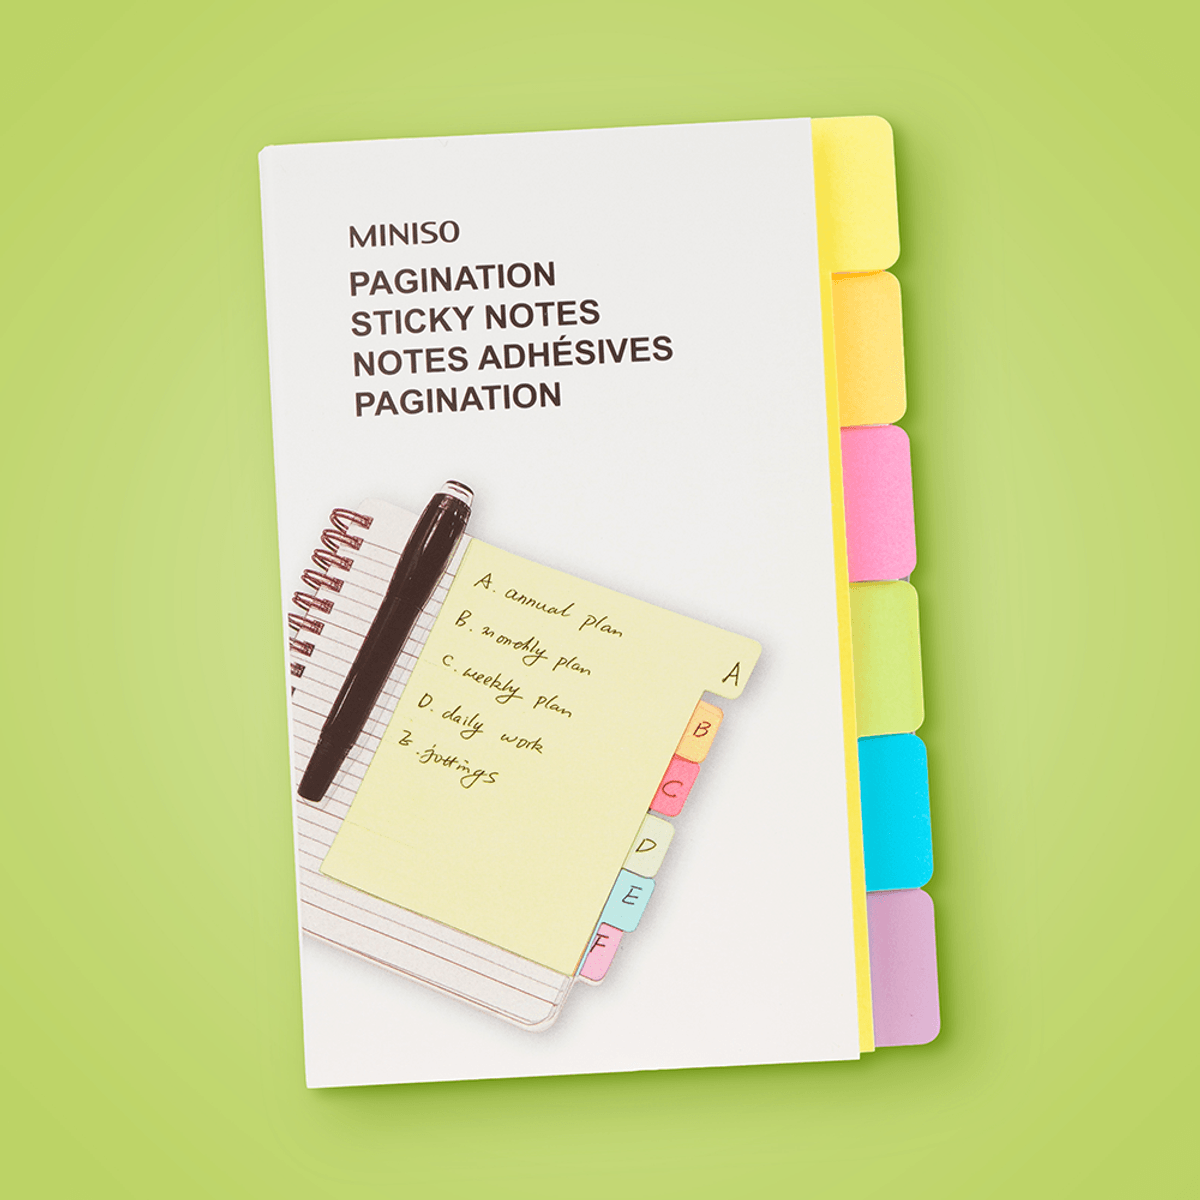 MINISO
PAGINATION
STICKY NOTES
NOTES ADHÉSIVES
PAGINATION
A. annual plan
B. monthly plan
C. weekly plan
D. daily work
E. jottings
A
B
C
D
E
F